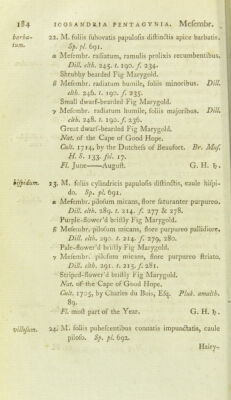 184 ICOSANDRIA PENTAGYNIA. Mesembr.
barba- 22. M. foliis subovatis papulosis distinctis apice barbatis.
tum. Sp. pl. 691.
α Mesembr. radiatum, ramulis prolixis recumbentibus.
Dill. elth. 245. t. 190. f. 234.
Shrubby bearded Fig Marygold.
β Mesembr. radiatum humile, foliis minoribus. Dill.
elth. 246. t. 190. f. 235.
Small dwarf-bearded Fig Marygold.
γ Mesembr. radiatum humile, foliis majoribus. Dill.
elth. 248. t. 190. f. 236.
Great dwarf-bearded Fig Marygold.
Nat. of the Cape of Good Hope.
Cult. 1714, by the Dutchess of Beaufort. Br. Mus.
H. S. 133. fol. 17.
Fl. June——August. G. H. ♄.
hispidum. 23. M. foliis cylindricis papulosis distinctis, caule hispi-
do. Sp. pl. 691.
α Mesembr. pilosum micans, flore saturanter purpureo.
Dill. elth. 289. t. 214. f. 277 & 278.
Purple-flower'd bristly Fig Marygold.
β Mesembr. pilosum micans, flore purpureo pallidiore.
Dill. elth. 290. t. 214. f. 279, 280.
Pale-flower'd bristly Fig Marygold.
γ Mesembr. pilosum micans, flore purpureo striato.
Dill. elth. 291. t. 215. f. 281.
Striped-flower'd bristly Fig Marygold.
Nat. of the Cape of Good Hope.
Cult. 1705, by Charles du Bois, Esq. Pluk. amalth.
89.
Fl. most part of the Year. G. H. ♄.
villosum. 24. M. foliis pubescentibus connatis impunctatis, caule
piloso. Sp. pl. 692.
Hairy-